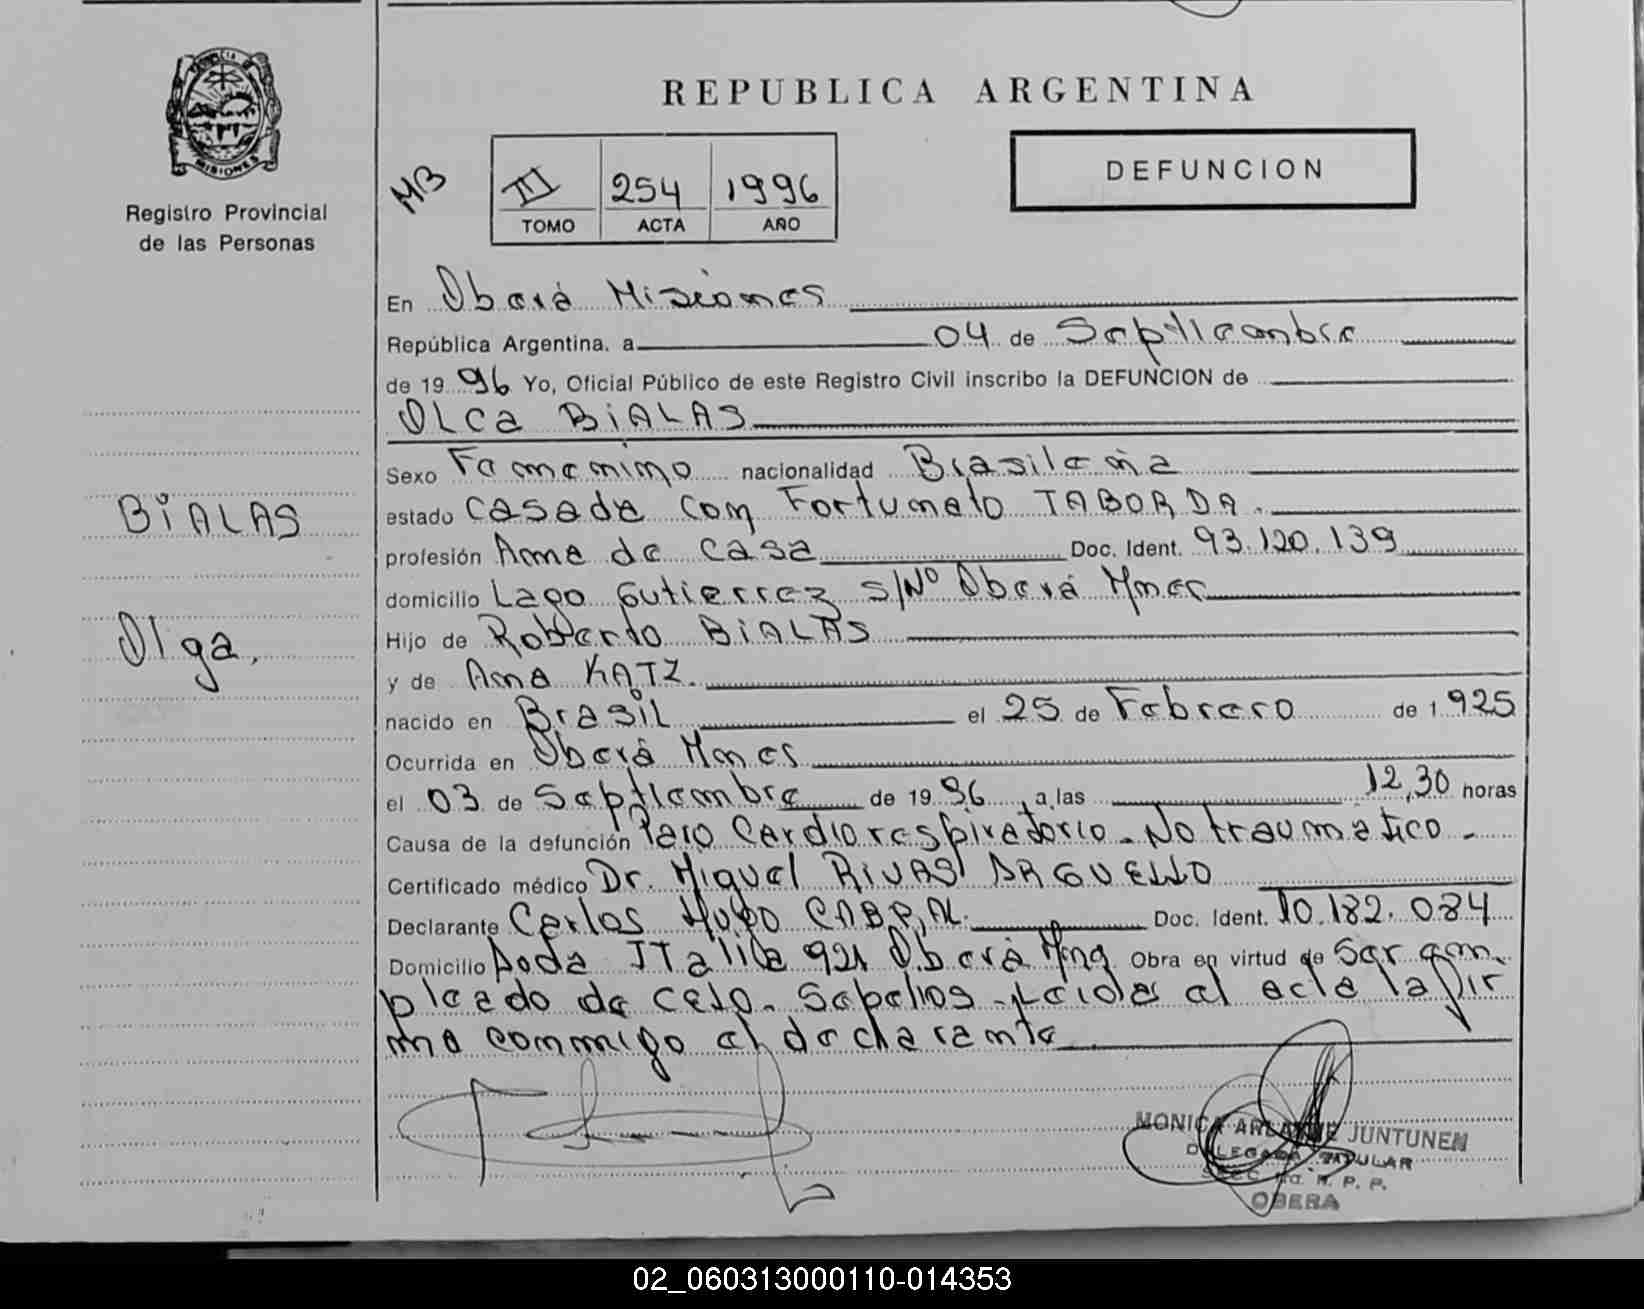 REPUBLICA ARGENTINA
PROVINCIA DE MISIONES
Registro Provincial
de las Personas
MB
II 254 1996
TOMO ACTA AÑO
DEFUNCION
En Oberá Misiones
República Argentina, a 04 de Septiembre
de 1996 Yo, Oficial Público de este Registro Civil inscribo la DEFUNCION de
OLGa BiALAS
Sexo Femenino nacionalidad Brasileña
BiALAS
estado casada con Fortunato TABORDA.
profesión Ama de casa Doc. Ident. 93.120.139
domicilio Lago Gutierrez S/Nº Oberá Mnes
Olga,
Hijo de Roberto BiALAS
y de Ana KATZ.
nacido en Brasil el 25 de Febrero de 1925
Ocurrida en Oberá Mnes
el 03 de Septiembre de 1996, a las 12,30 horas
Causa de la defunción Paro Cardiorespiratorio - No traumatico -
Certificado médico Dr. Miguel RIVAS ARGUELLO
Declarante Carlos Hugo CABRAL. Doc. Ident. 10.182.084
Domicilio Avda ITalia 921 Oberá Mns Obra en virtud de Ser em-
pleado de CELO. Sepelios - Leida el acta la fir
ma conmigo el declarante
MONICA JUNTUNEN
DELEGADA TITULAR
R. P. P.
OBERA
02_060313000110-014353